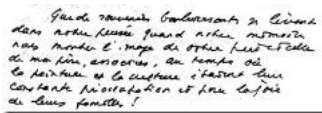 Que de souvenirs bouleversants se lèvent
dans notre pensée quand notre mémoire
nous montre l'image de votre père et celle
de mon père, associées, au temps où
la peinture et la culture étaient leur
constante préoccupation et pour la joie
de leurs familles !